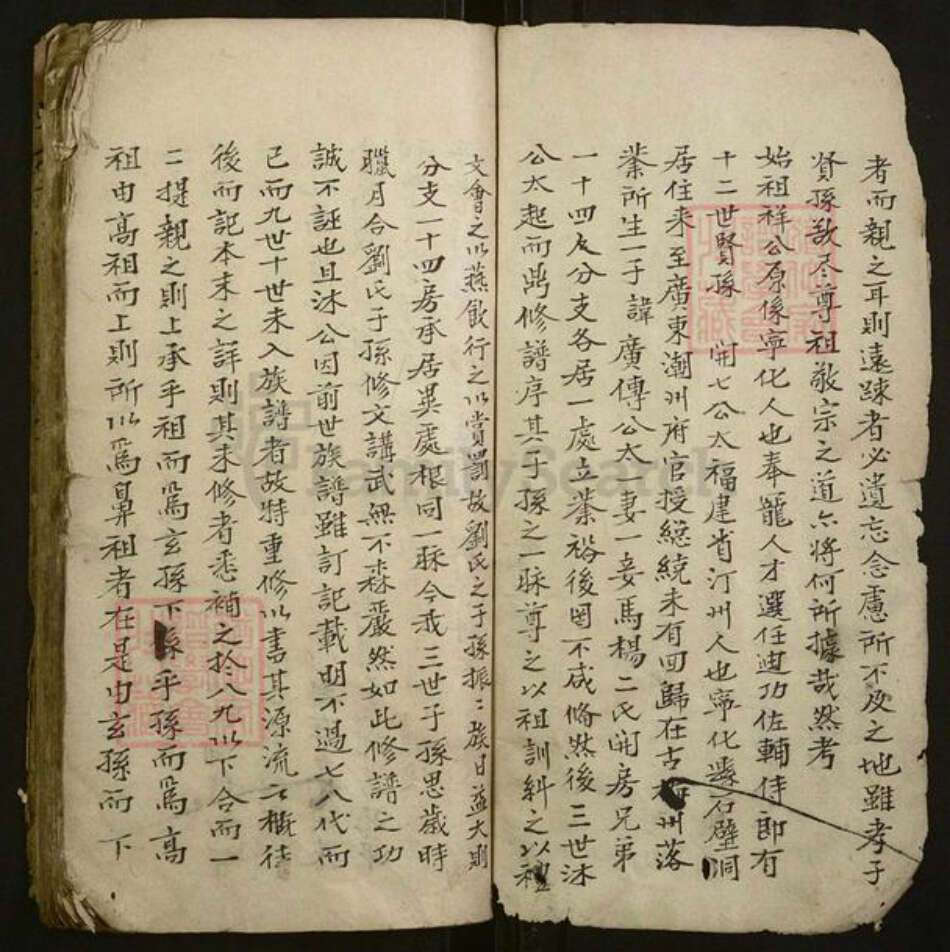 者而親之耳則遠踈者必遺忘念慮所不及之地雖孝子
賢孫敬尽尊祖敬宗之道亦將何所據哉然考
始祖祥公原係寧化人也奉龍人才選任廸功佐輔侍即有
十二世賢孫 開七公太福建省汀州人也寧化縣石壁洞
居住来至廣東潮州府官授總統未有回歸在古梅州落
業所生一子諱廣傳公太一妻一妾馬楊二氏開房兄弟
一十四人分支各居一處立業裕後罔不咸脩然後三世沐
公太起而鼎修譜序其子孫之一脉尊之以祖訓糾之以禮
文會之以燕飲行之以賞罰故劉氏之子孫振〻族日益大則
分支一十四房承居異處根同一脉今我三世子孫思歲時
臘月合劉氏子孫修文講武無不森嚴然如此修譜之功
誠不誣也且沐公因前世族譜雖訂記載明不過七八代而
已而九世十世未入族譜者故特重修以書其源流之概待
後而記本末之詳則其未修者悉補之於八九以下合而一
二提親之則上承乎祖而爲玄孫下孫乎孫而爲高
祖由高祖而上則所以爲鼻祖者在是由玄孫而下
FamilySearch